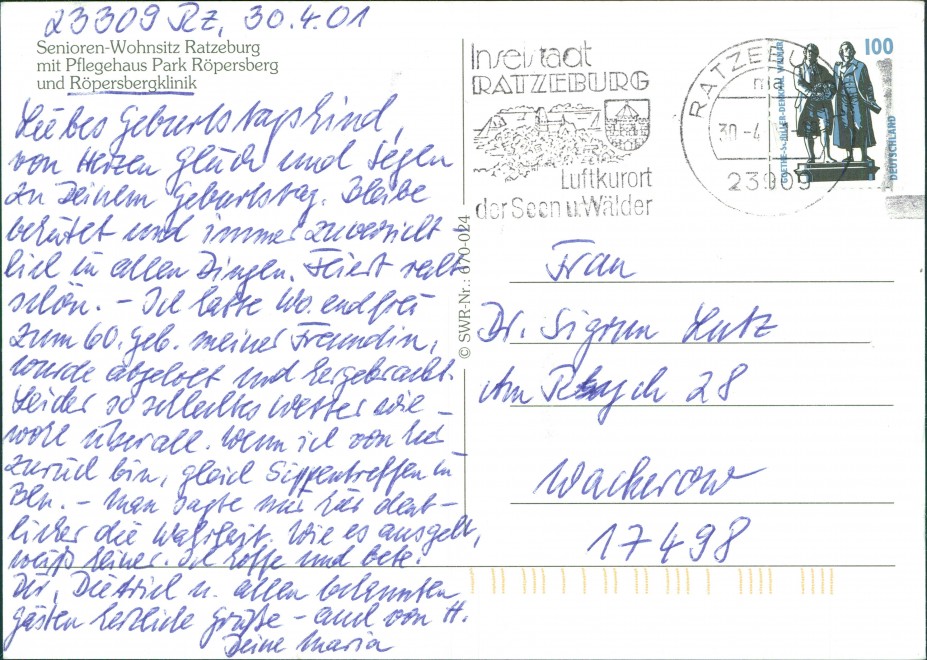 23309 Rz, 30.4.01
Senioren-Wohnsitz Ratzeburg
mit Pflegehaus Park Röpersberg
und Röpersbergklinik
Liebes Geburtstagskind,
von Herzen Glück und Segen
zu Deinem Geburtstag. Bleibe
behütet und immer zuversicht-
lich in allen Dingen. Feiert recht
schön. – Ich hatte Wo.endfrei
zum 60. Geb. meiner Freundin,
wurde abgeholt und hergebracht.
Leider so schlechtes Wetter wie –
wohl überall. Wenn ich von hier
zurück bin, gleich Sippentreffen in
Bln. – Man sagte mir hier deut-
licher die Wahrheit. Wie es ausgeht,
weiß keiner. Ich hoffe und bete.
Dir, Dietrich u. allen bekannten
Gästen herzliche Grüße – auch von H.
Deine Maria
© SWR-Nr.: 670-024
Inselstadt
RATZEBURG
Luftkurort
der Seen u. Wälder
RATZEBU
30.-4.
23909
100
GOETHE-SCHILLER-DENKMAL WEIMAR
DEUTSCHLAND
Frau
Dr. Sigrun Lutz
Am 28
Wackerow
17498